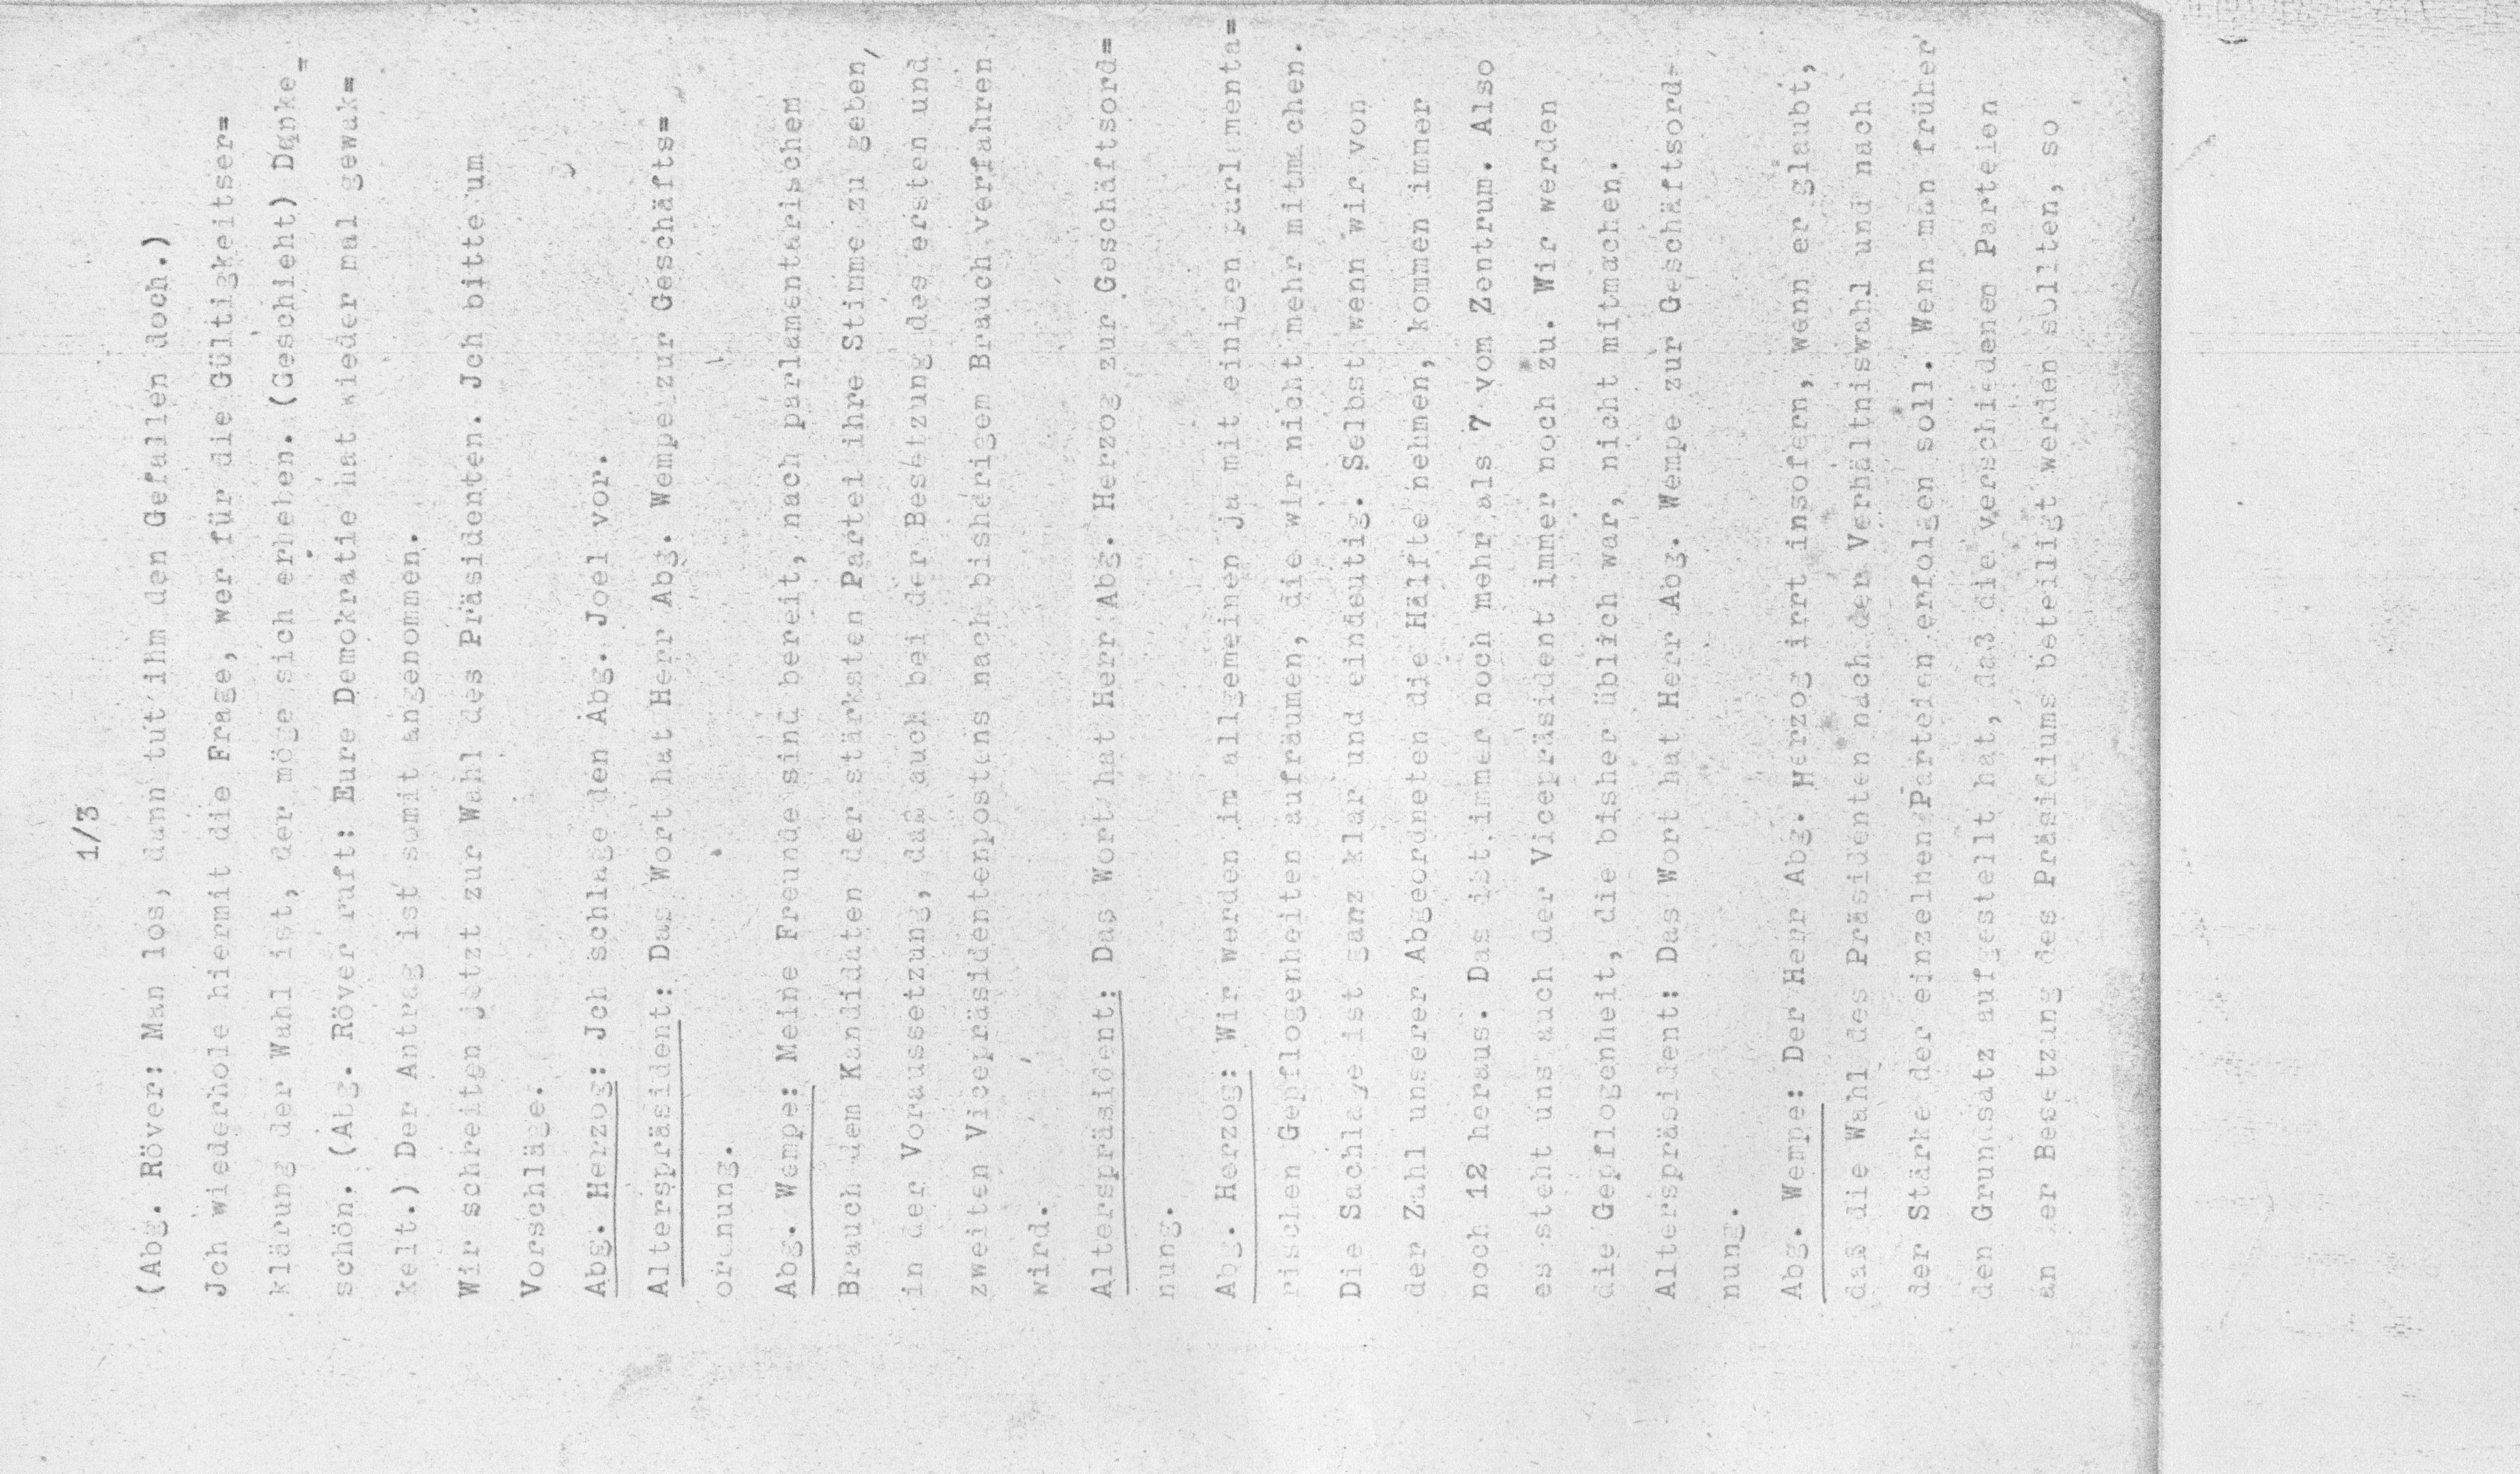 1/3
(Abg. Röver: Man los, dann tut ihm den Gefallen doch.)
Jch wiederhole hiermit die Frage, wer für die Gültigkeitser=
klärung der Wahl ist, der möge sich erheben. (Geschieht) Danke=
schön. (Abg. Röver ruft: Eure Demokratie hat wieder mal gewak=
kelt.) Der Antrag ist somit angenommen.
Wir schreiten jetzt zur Wahl des Präsidenten. Jch bitte um
Vorschläge.
Abg. Herzog: Jch schlage den Abg. Joel vor.
Alterspräsident: Das Wort hat Herr Abg. Wempe zur Geschäfts=
ordnung.
Abg. Wempe: Meine Freunde sind bereit, nach parlamentarischem
Brauch dem Kandidaten der stärksten Partei ihre Stimme zu geben,
in der Voraussetzung, daß auch bei der Besetzung des ersten und
zweiten Vicepräsidentenpostens nach bisherigem Brauch verfahren
wird.
Alterspräsident: Das Wort hat Herr Abg. Herzog zur Geschäftsord=
nung.
Abg. Herzog: Wir werden im allgemeinen ja mit einigen parlamenta=
rischen Gepflogenheiten aufräumen, die wir nicht mehr mitmachen.
Die Sachlage ist ganz klar und eindeutig. Selbst wenn wir von
der Zahl unserer Abgeordneten die Hälfte nehmen, kommen immer
noch 12 heraus. Das ist immer noch mehr als 7 vom Zentrum. Also
es steht uns auch der Vicepräsident immer noch zu. Wir werden
die Gepflogenheit, die bisher üblich war, nicht mitmachen.
Alterspräsident: Das Wort hat Herr Abg. Wempe zur Geschäftsord=
nung.
Abg. Wempe: Der Herr Abg. Herzog irrt insofern, wenn er glaubt,
daß die Wahl des Präsidenten nach der Verhältniswahl und nach
der Stärke der einzelnen Parteien erfolgen soll. Wenn man früher
den Grundsatz aufgestellt hat, daß die verschiedenen Parteien
an der Besetzung des Präsidiums beteiligt werden sollten, so